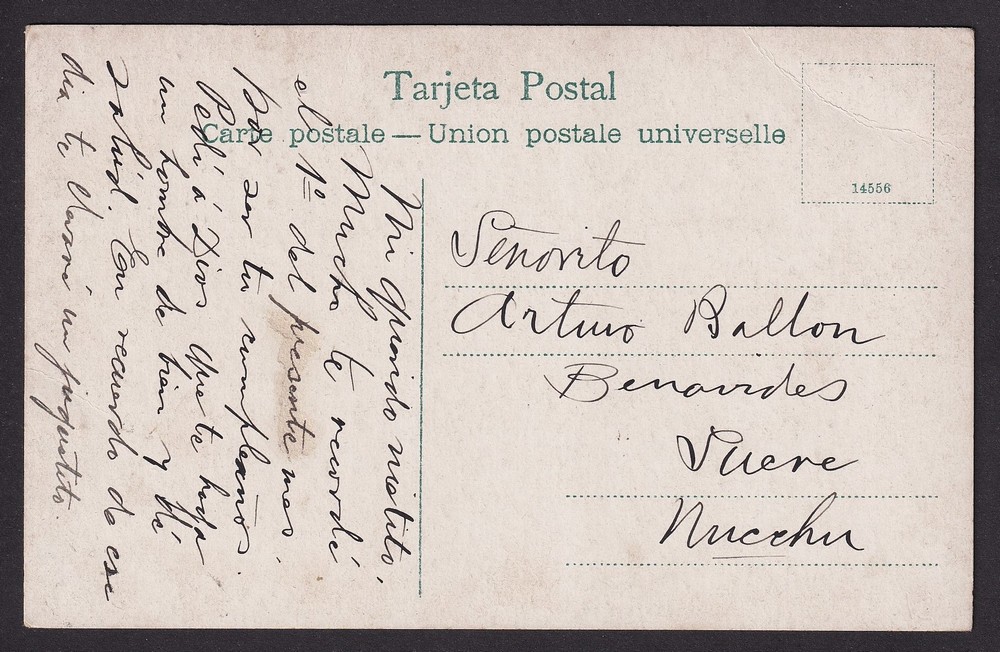 Tarjeta Postal
Carte postale — Union postale universelle
14556
Mi querido nietito,
Mucho te recordé
el 1º del presente mes,
por ser tu cumpleaños.
Pedí á Dios que te haga
un hombre de bien y dé
salud. En recuerdo de ese
dia te llevaré un juguetito.
Señorito
Arturo Ballon
Benavides
Sucre
Nucchu